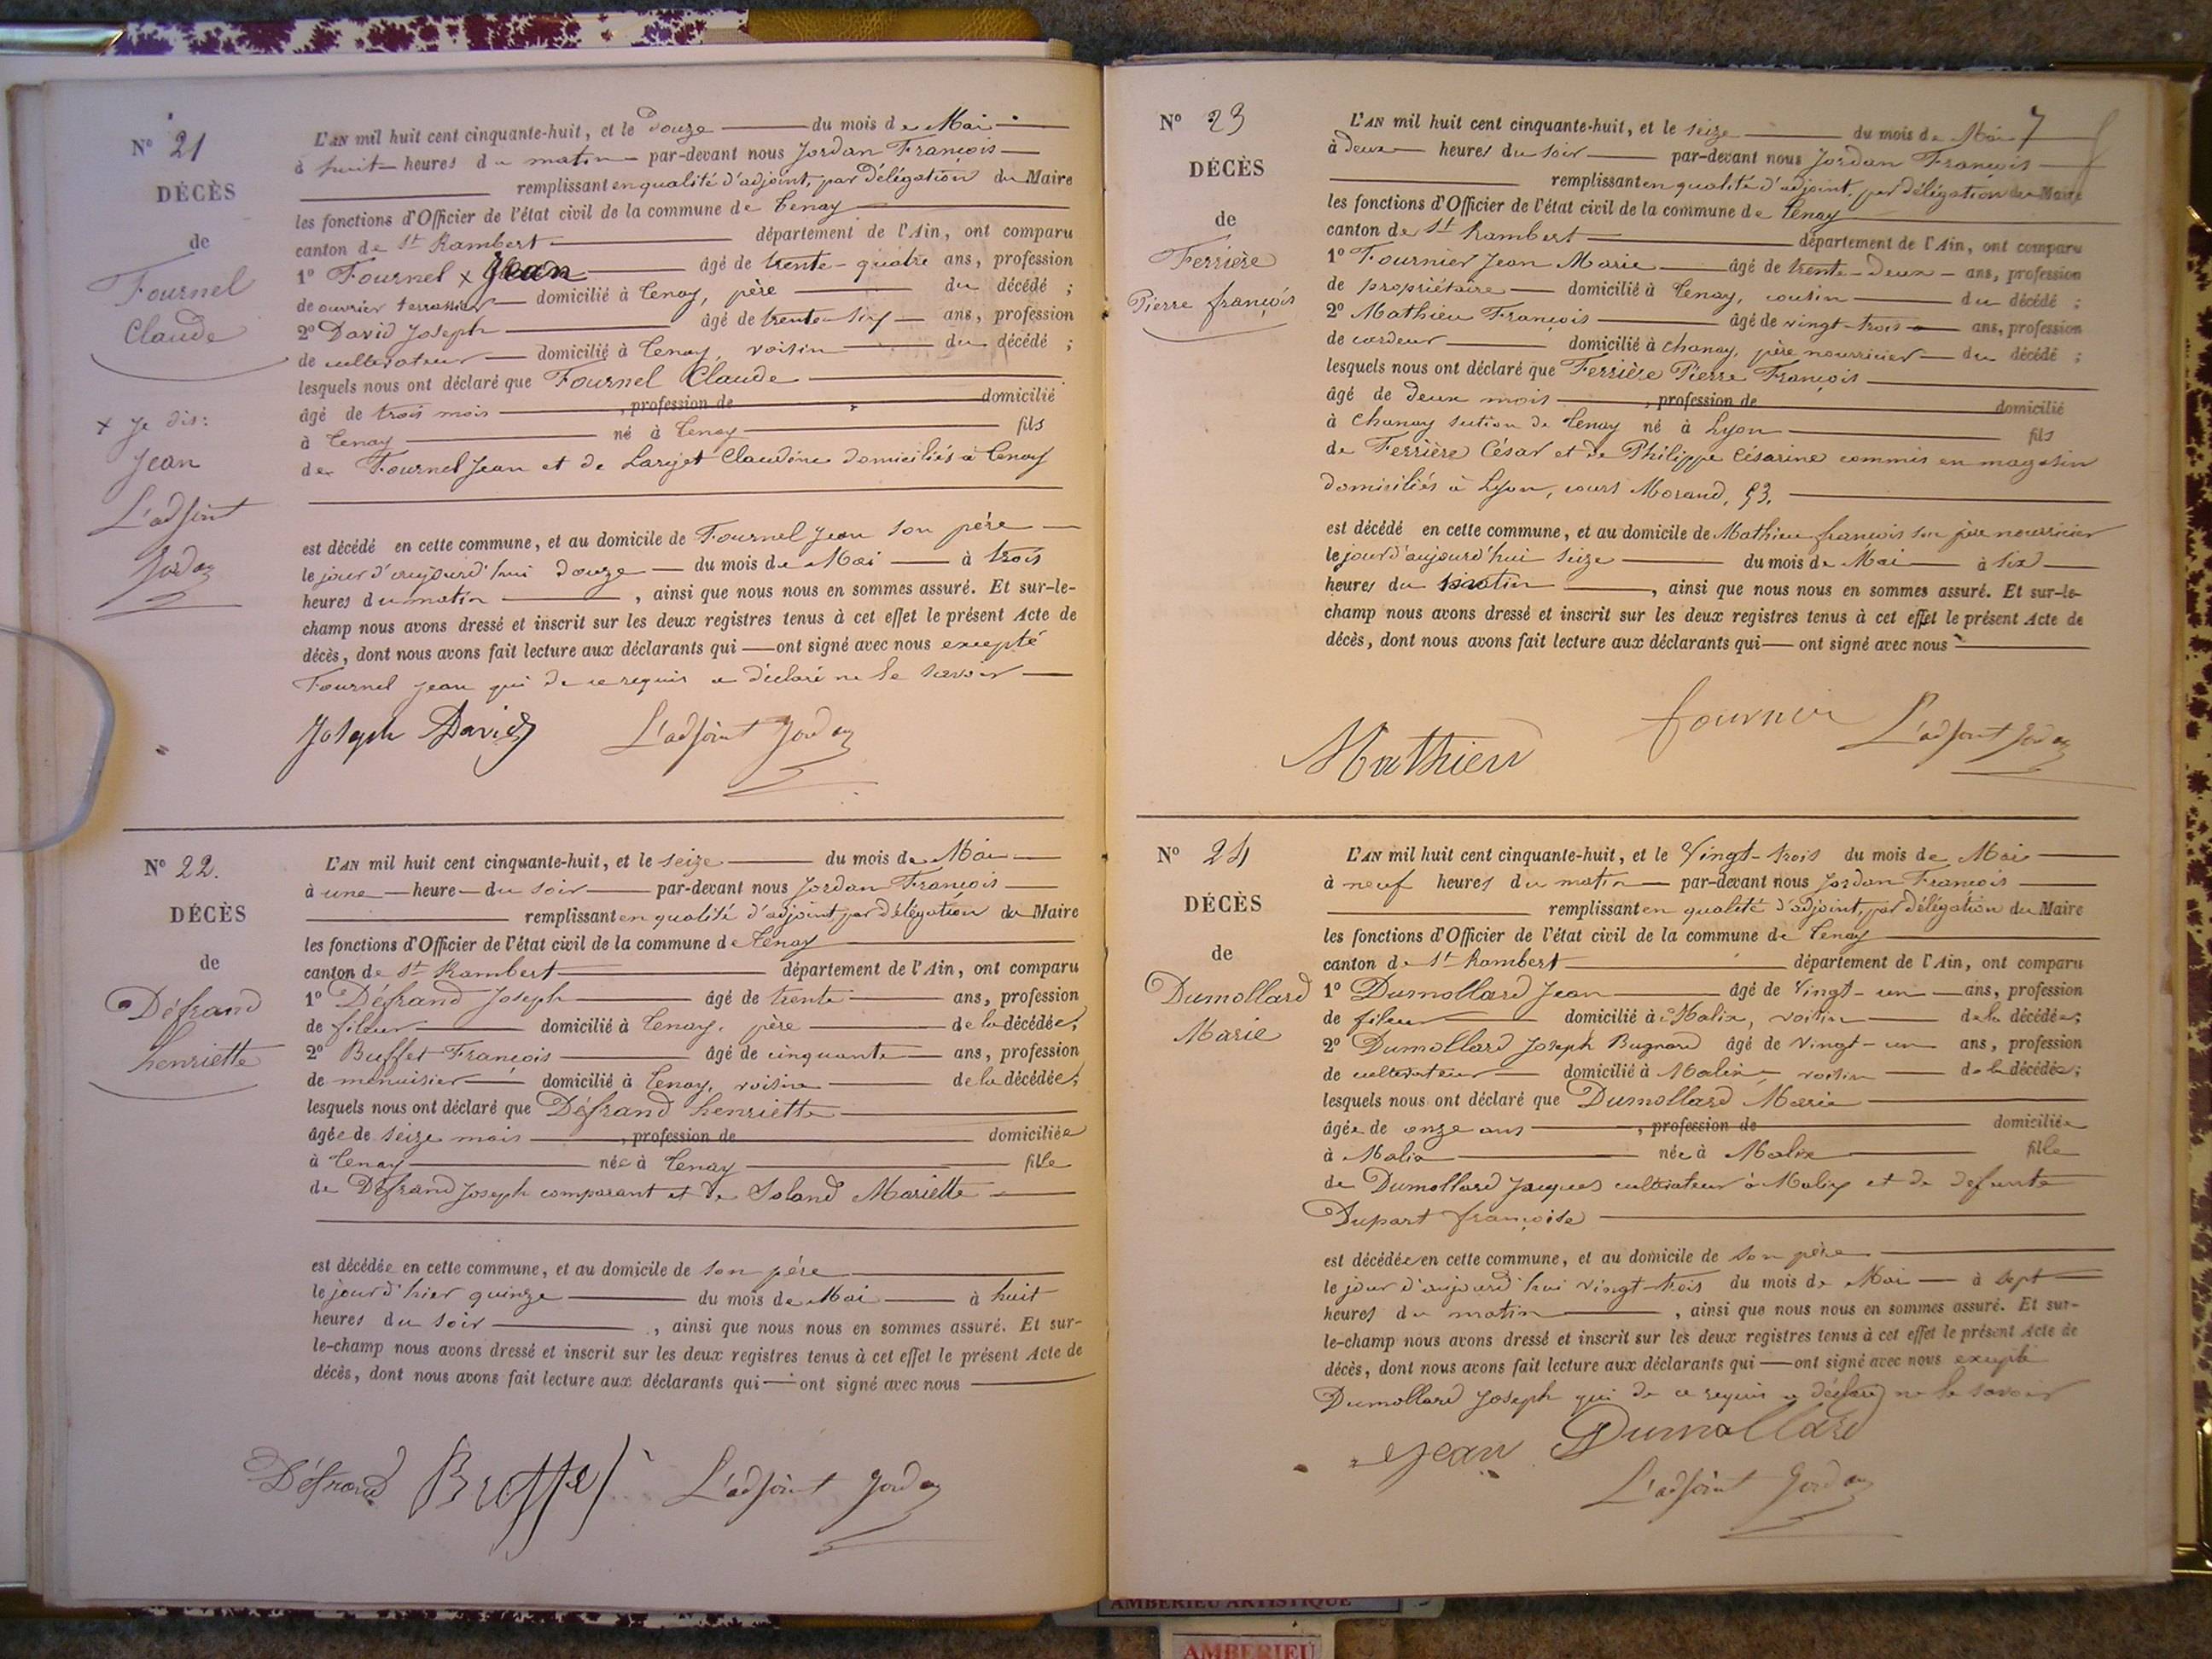 N° 21
DÉCÈS
de
Fournel
Claude
x Je dis:
Jean
L'adjoint
Jordan
L'AN mil huit cent cinquante-huit, et le Douze du mois de Mai
à huit heures du matin par-devant nous Jordan François
remplissant en qualité d'adjoint, par délégation du Maire
les fonctions d'Officier de l'état civil de la commune de Tenay
canton de St Rambert département de l'Ain, ont comparu
1° Fournel x Jean âgé de trente-quatre ans, profession
de ouvrier terrassier domicilié à Tenay, père du décédé ;
2° David Joseph âgé de trente-six ans, profession
de cultivateur domicilié à Tenay, voisin du décédé ;
lesquels nous ont déclaré que Fournel Claude
âgé de trois mois , profession de domicilié
à Tenay né à Tenay fils
de Fournel Jean et de Claudine domiciliés à Tenay
est décédé en cette commune, et au domicile de Fournel Jean son père
le jour d'aujourd'hui douze du mois de Mai à trois
heures du matin , ainsi que nous nous en sommes assuré. Et sur-le-
champ nous avons dressé et inscrit sur les deux registres tenus à cet effet le présent Acte de
décès, dont nous avons fait lecture aux déclarants qui ont signé avec nous excepté
Fournel Jean qui de ce requis a déclaré ne le savoir
Joseph David L'adjoint Jordan
N° 22.
DÉCÈS
de
Défrand
henriette
L'AN mil huit cent cinquante-huit, et le seize du mois de Mai
à une heure du soir par-devant nous Jordan François
remplissant en qualité d'adjoint, par délégation du Maire
les fonctions d'Officier de l'état civil de la commune de Tenay
canton de St Rambert département de l'Ain, ont comparu
1° Défrand Joseph âgé de trente ans, profession
de fileur domicilié à Tenay, père de la décédée;
2° Buffet François âgé de cinquante ans, profession
de menuisier domicilié à Tenay, voisin de la décédée;
lesquels nous ont déclaré que Défrand henriette
âgée de seize mois , profession de domiciliée
à Tenay née à Tenay fille
de Défrand Joseph comparant et de Soland Mariette
est décédée en cette commune, et au domicile de son père
le jour d'hier quinze du mois de Mai à huit
heures du soir , ainsi que nous nous en sommes assuré. Et sur-
le-champ nous avons dressé et inscrit sur les deux registres tenus à cet effet le présent Acte de
décès, dont nous avons fait lecture aux déclarants qui ont signé avec nous
Défrand Buffet L'adjoint Jordan
N° 23
DÉCÈS
de
Ferrière
Pierre françois
7
L'AN mil huit cent cinquante-huit, et le seize du mois de Mai
à deux heures du soir par-devant nous Jordan François
remplissant en qualité d'adjoint, par délégation du Maire
les fonctions d'Officier de l'état civil de la commune de Tenay
canton de St Rambert département de l'Ain, ont comparu
1° Fournier Jean Marie âgé de trente-deux ans, profession
de propriétaire domicilié à Tenay, cousin du décédé ;
2° Mathieu François âgé de vingt-trois ans, profession
de cardeur domicilié à Chanay, père nourricier du décédé ;
lesquels nous ont déclaré que Ferrière Pierre François
âgé de deux mois , profession de domicilié
à Chanay section de Tenay né à Lyon fils
de Ferrière César et de Philippe Césarine commis en magasin
domiciliés à Lyon, cours Morand, 53.
est décédé en cette commune, et au domicile de Mathieu françois son père nourricier
le jour d'aujourd'hui seize du mois de Mai à six
heures du matin , ainsi que nous nous en sommes assuré. Et sur-le-
champ nous avons dressé et inscrit sur les deux registres tenus à cet effet le présent Acte de
décès, dont nous avons fait lecture aux déclarants qui ont signé avec nous
Mathieu fournier L'adjoint Jordan
N° 24
DÉCÈS
de
Dumollard
Marie
L'AN mil huit cent cinquante-huit, et le Vingt-trois du mois de Mai
à neuf heures du matin par-devant nous Jordan François
remplissant en qualité d'adjoint, par délégation du Maire
les fonctions d'Officier de l'état civil de la commune de Tenay
canton de St Rambert département de l'Ain, ont comparu
1° Dumollard Jean âgé de Vingt-un ans, profession
de fileur domicilié à Malix, voisin de la décédée;
2° Dumollard Joseph Bugnard âgé de Vingt-un ans, profession
de cultivateur domicilié à Malix voisin de la décédée;
lesquels nous ont déclaré que Dumollard Marie
âgée de onze ans , profession de domiciliée
à Malix née à Malix fille
de Dumollard Jacques cultivateur à Malix et de defunte
Dupart françoise
est décédée en cette commune, et au domicile de son père
le jour d'aujourd'hui vingt-trois du mois de Mai à sept
heures du matin , ainsi que nous nous en sommes assuré. Et sur-
le-champ nous avons dressé et inscrit sur les deux registres tenus à cet effet le présent Acte de
décès, dont nous avons fait lecture aux déclarants qui ont signé avec nous excepté
Dumollard Joseph qui de ce requis a déclaré ne le savoir
Jean Dumollard
L'adjoint Jordan
AMBERIEU ARTISTIQUE
AMBERIEU